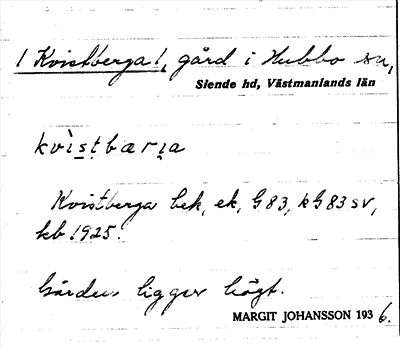 / Kvistberga /, gård i Hubbo sn,
Siende hd, Västmanlands län
kvìstbærịa
Kvistberga bek, ek, G 83, kG 83 sv,
kb 1925.
Gården ligger högt.
MARGIT JOHANSSON 1936.